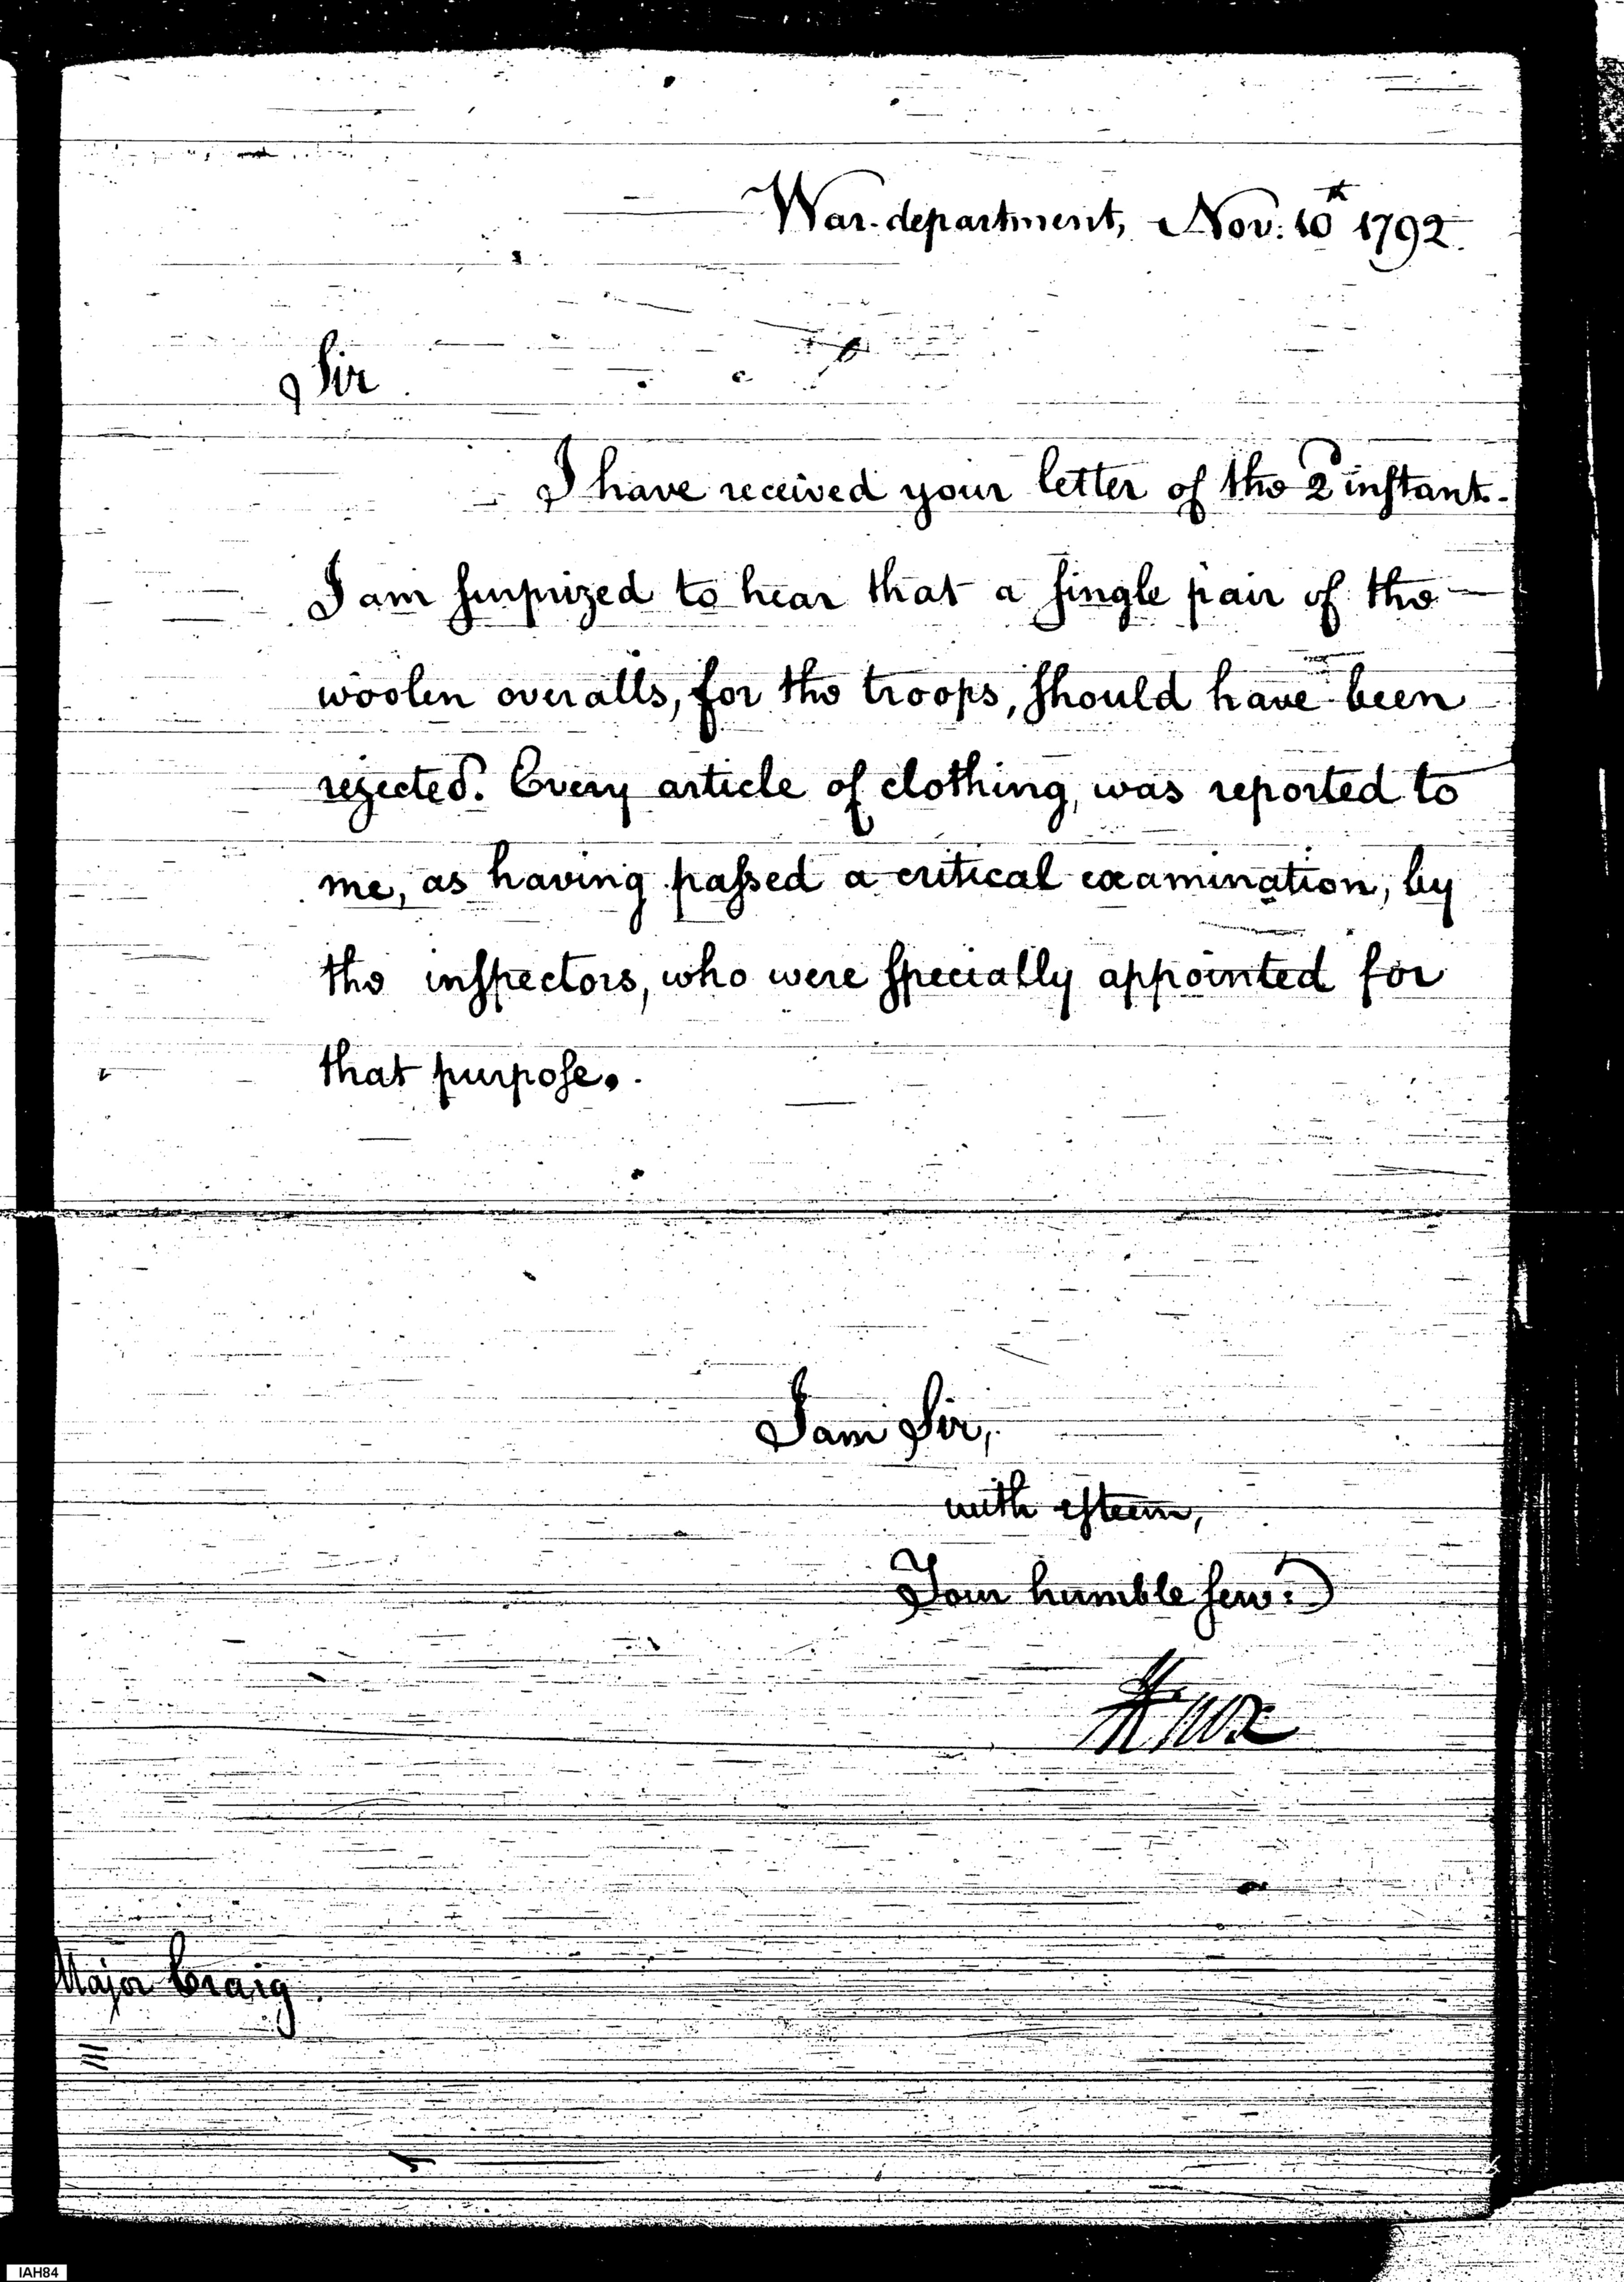 War-department, Nov: 10th 1792.
Sir
I have received your letter of the 2d instant.
I am surprized to hear that a single pair of the
woolen overalls, for the troops, should have been
rejected. Every article of clothing, was reported to
me, as having passed a critical examination, by
the inspectors, who were specially appointed for
that purpose.
I am Sir,
with esteem,
Your humble serv:
HKnox
Major Craig
IAH84